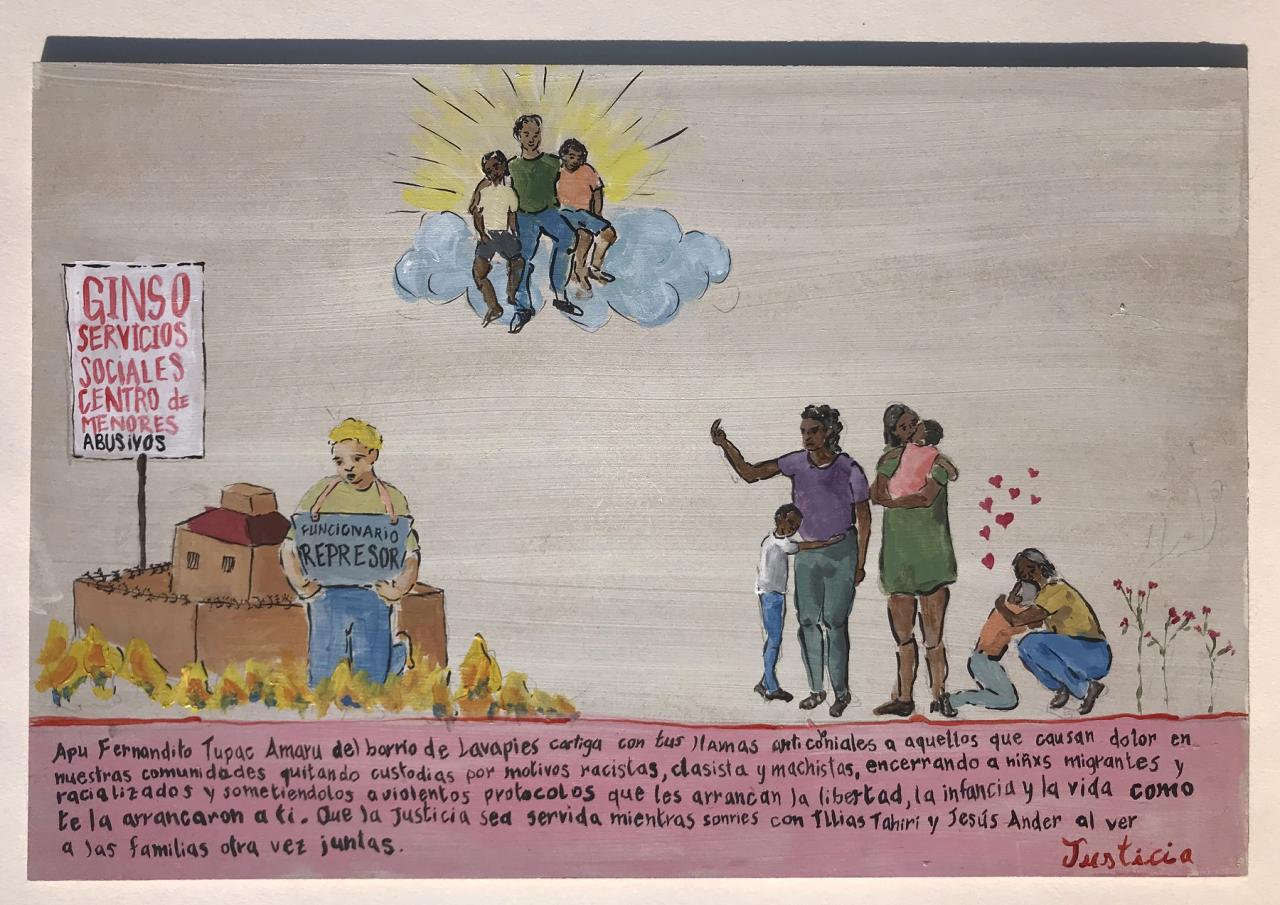 GINSO
SERVICIOS
SOCIALES
CENTRO de
MENORES
ABUSIVOS
FUNCIONARIO
REPRESOR
Apu Fernandito Tupac Amaru del barrio de Lavapies castiga con tus llamas anticoñiales a aquellos que causan dolor en
nuestras comunidades quitando custodias por motivos racistas, clasista y machistas, encerrando a niñxs migrantes y
racializados y sometiendolos a violentos protocolos que les arrancan la libertad, la infancia y la vida como
te la arrancaron a ti. Que la Justicia sea servida mientras sonries con Illias Tahiri y Jesús Ander al ver
a las familias otra vez juntas.
Justicia